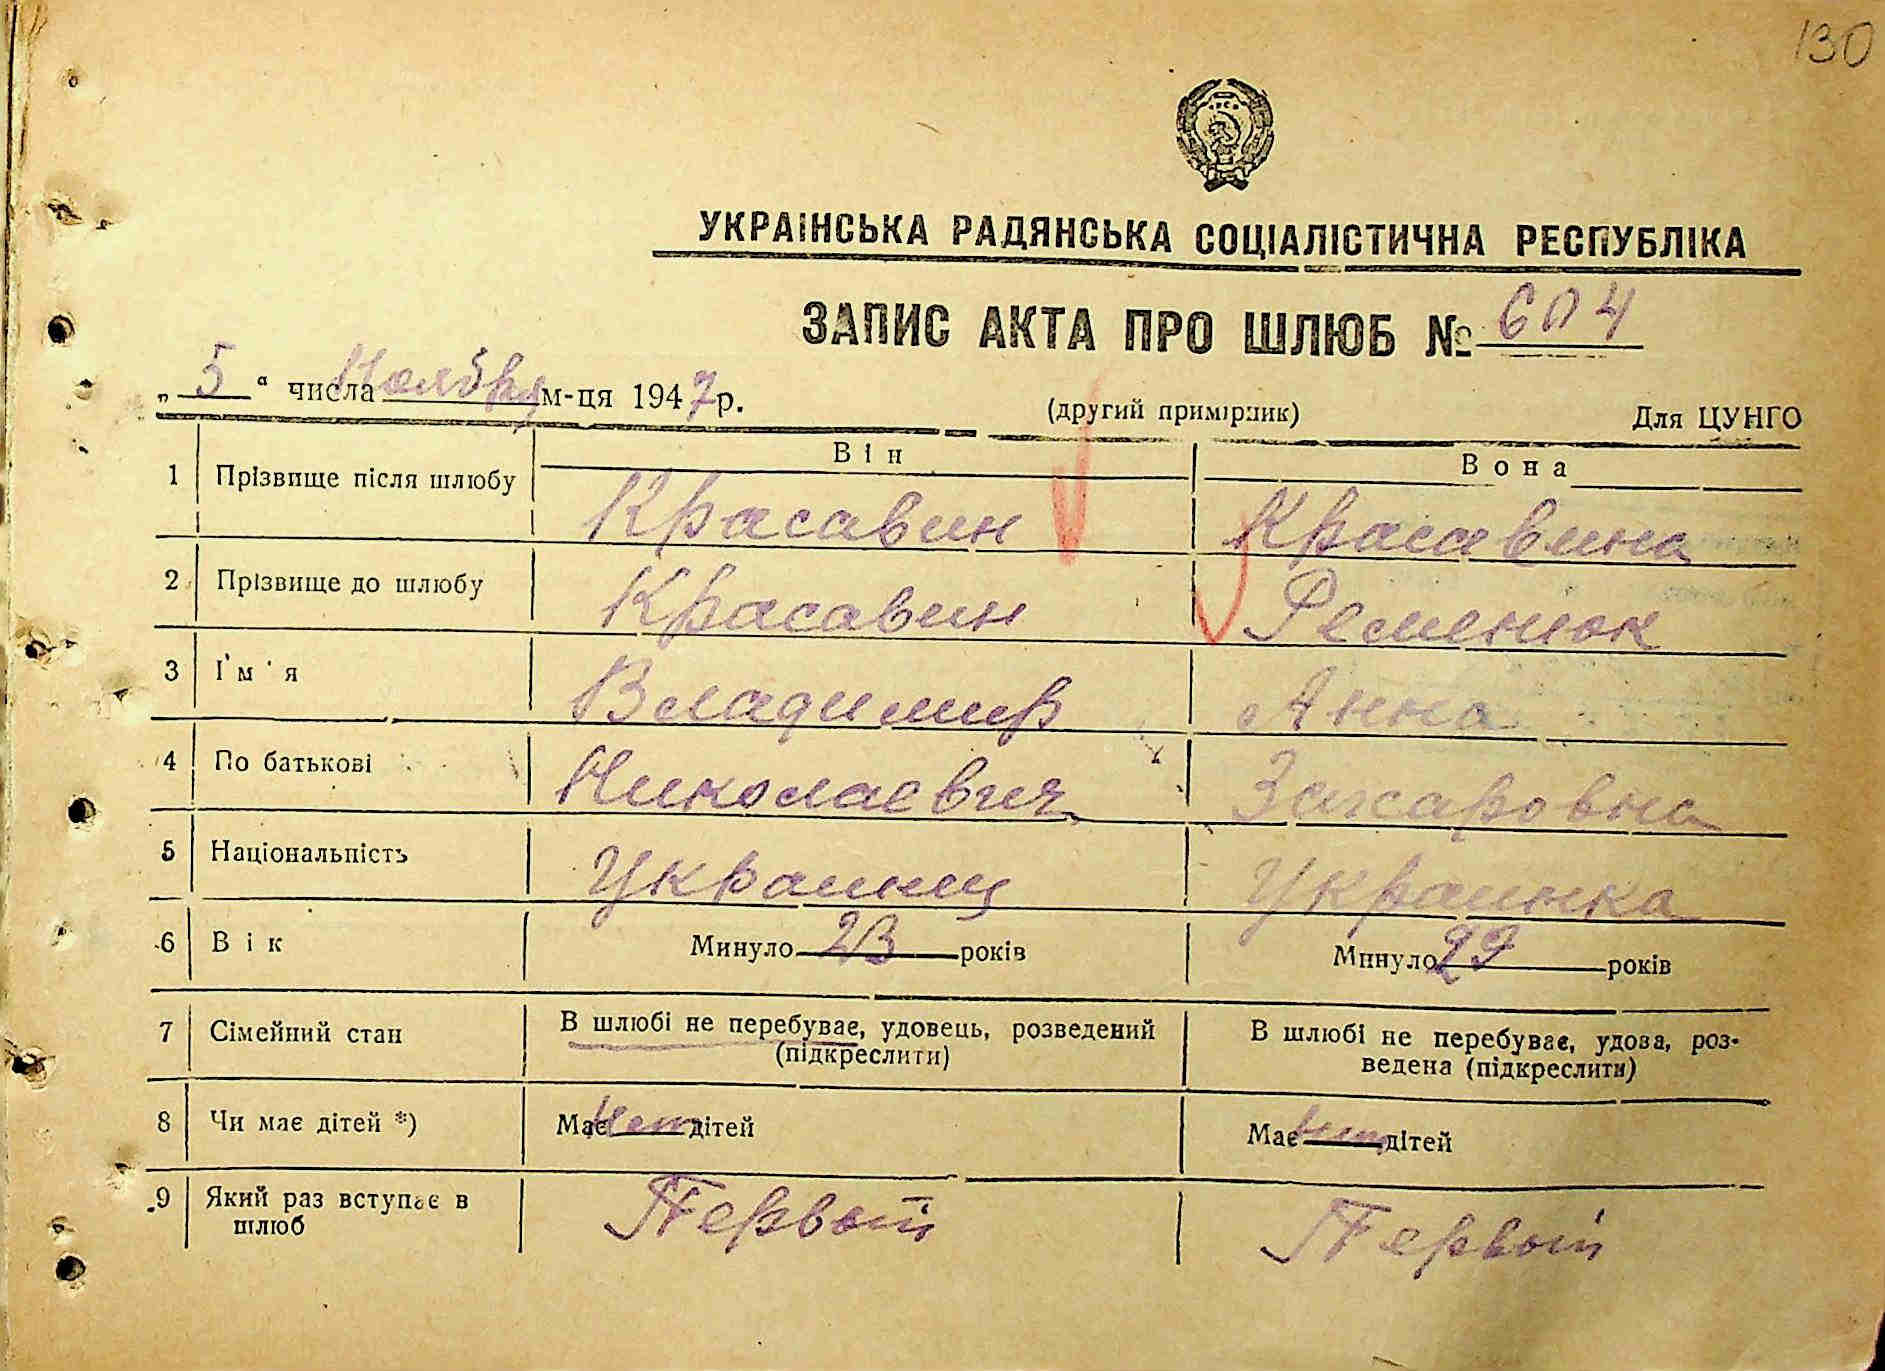 130
УКРАЇНСЬКА РАДЯНСЬКА СОЦІАЛІСТИЧНА РЕСПУБЛІКА
ЗАПИС АКТА ПРО ШЛЮБ № 604
„ 5 “ числа Ноября м-ця 1947 р.
(другий примірник) Для ЦУНГО
Він Вона
1 Прізвище після шлюбу Красавин Красавина
2 Прізвище до шлюбу Красавин Ременюк
3 Ім'я Владимир Анна
4 По батькові Николаевич Захаровна
5 Національність Украинец Украинка
6 Вік Минуло 23 років Минуло 29 років
7 Сімейний стан В шлюбі не перебуває, удовець, розведений В шлюбі не перебуває, удова, роз-
(підкреслити) ведена (підкреслити)
8 Чи має дітей *) Має Нет дітей Має нет дітей
9 Який раз вступає в Первый Первый
шлюб